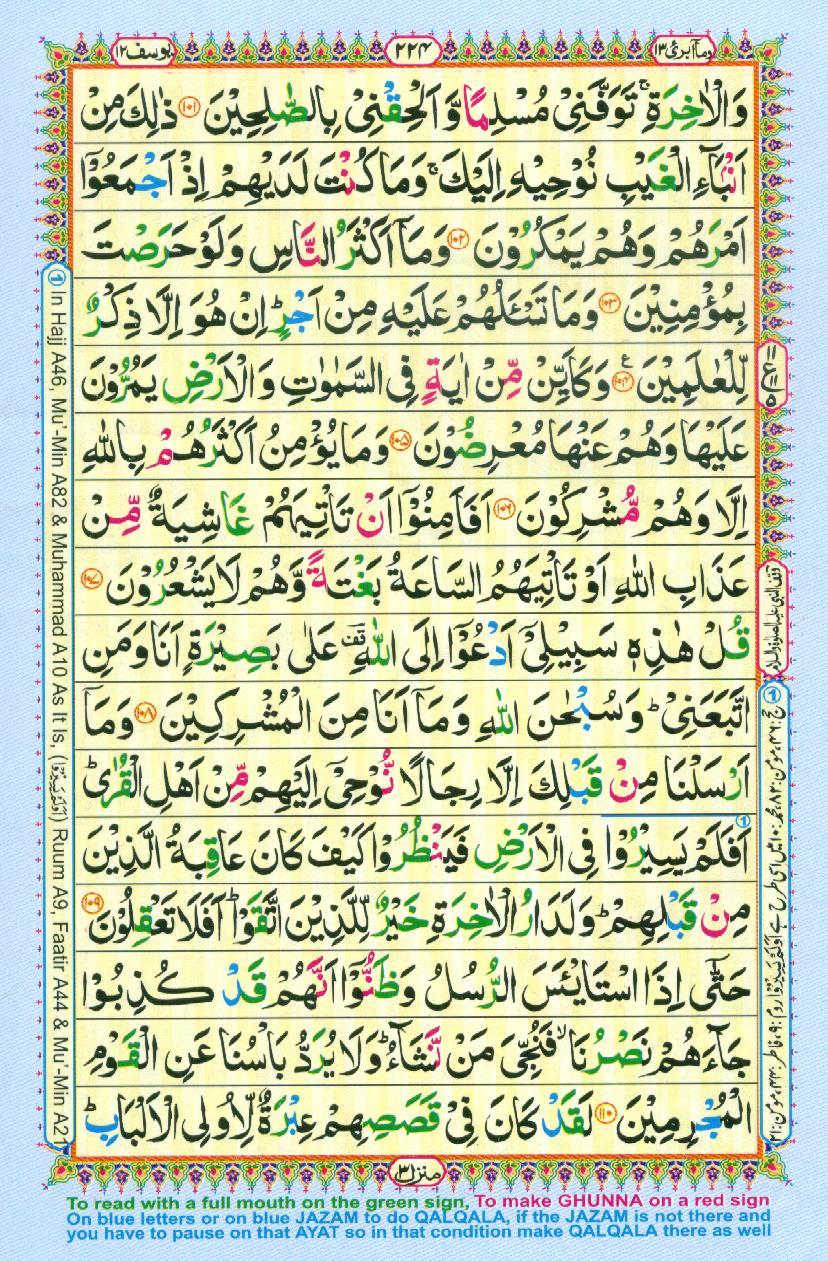 وماابرئ ۱۳
۲۲۴
یوسف ۱۲
وَالْاٰخِرَةِ ۚ تَوَفَّنِیْ مُسْلِمًا وَّ اَلْحِقْنِیْ بِالصّٰلِحِیْنَ ﴿۱۰۱﴾ ذٰلِكَ مِنْ
اَنْۢبَآءِ الْغَیْبِ نُوْحِیْهِ اِلَیْكَ ۚ وَمَا كُنْتَ لَدَیْهِمْ اِذْ اَجْمَعُوْۤا
اَمْرَهُمْ وَهُمْ یَمْكُرُوْنَ ﴿۱۰۲﴾ وَمَاۤ اَكْثَرُ النَّاسِ وَلَوْ حَرَصْتَ
بِمُؤْمِنِیْنَ ﴿۱۰۳﴾ وَمَا تَسْـَٔلُهُمْ عَلَیْهِ مِنْ اَجْرٍ ؕ اِنْ هُوَ اِلَّا ذِكْرٌ
لِّلْعٰلَمِیْنَ ﴿۱۰۴﴾ ع وَكَاَیِّنْ مِّنْ اٰیَةٍ فِی السَّمٰوٰتِ وَ الْاَرْضِ یَمُرُّوْنَ
عَلَیْهَا وَهُمْ عَنْهَا مُعْرِضُوْنَ ﴿۱۰۵﴾ وَمَا یُؤْمِنُ اَكْثَرُهُمْ بِاللّٰهِ
اِلَّا وَهُمْ مُّشْرِكُوْنَ ﴿۱۰۶﴾ اَفَاَمِنُوْۤا اَنْ تَاْتِیَهُمْ غَاشِیَةٌ مِّنْ
عَذَابِ اللّٰهِ اَوْ تَاْتِیَهُمُ السَّاعَةُ بَغْتَةً وَّهُمْ لَا یَشْعُرُوْنَ ﴿۱۰۷﴾
قُلْ هٰذِهٖ سَبِیْلِیْۤ اَدْعُوْۤا اِلَی اللّٰهِ ؔ عَلٰی بَصِیْرَةٍ اَنَا وَمَنِ
اتَّبَعَنِیْ ؕ وَسُبْحٰنَ اللّٰهِ وَمَاۤ اَنَا مِنَ الْمُشْرِكِیْنَ ﴿۱۰۸﴾ وَمَاۤ
اَرْسَلْنَا مِنْ قَبْلِكَ اِلَّا رِجَالًا نُّوْحِیْۤ اِلَیْهِمْ مِّنْ اَهْلِ الْقُرٰی ؕ
اَفَلَمْ یَسِیْرُوْا فِی الْاَرْضِ فَیَنْظُرُوْا كَیْفَ كَانَ عَاقِبَةُ الَّذِیْنَ
مِنْ قَبْلِهِمْ ؕ وَلَدَارُ الْاٰخِرَةِ خَیْرٌ لِّلَّذِیْنَ اتَّقَوْا ؕ اَفَلَا تَعْقِلُوْنَ ﴿۱۰۹﴾
حَتّٰۤی اِذَا اسْتَایْئَسَ الرُّسُلُ وَظَنُّوْۤا اَنَّهُمْ قَدْ كُذِبُوْا
جَآءَهُمْ نَصْرُنَا ۙ فَنُجِّیَ مَنْ نَّشَآءُ ؕ وَلَا یُرَدُّ بَاْسُنَا عَنِ الْقَوْمِ
الْمُجْرِمِیْنَ ﴿۱۱۰﴾ لَقَدْ كَانَ فِیْ قَصَصِهِمْ عِبْرَةٌ لِّاُولِی الْاَلْبَابِ ؕ
منزل ۳
① In Hajj A46, Mu'-Min A82 & Muhammad A10 As It Is, (اَوَلَمْ یَسِیْرُوْا) Ruum A9, Faatir A44 & Mu'-Min A21
To read with a full mouth on the green sign, To make GHUNNA on a red sign
On blue letters or on blue JAZAM to do QALQALA, if the JAZAM is not there and
you have to pause on that AYAT so in that condition make QALQALA there as well